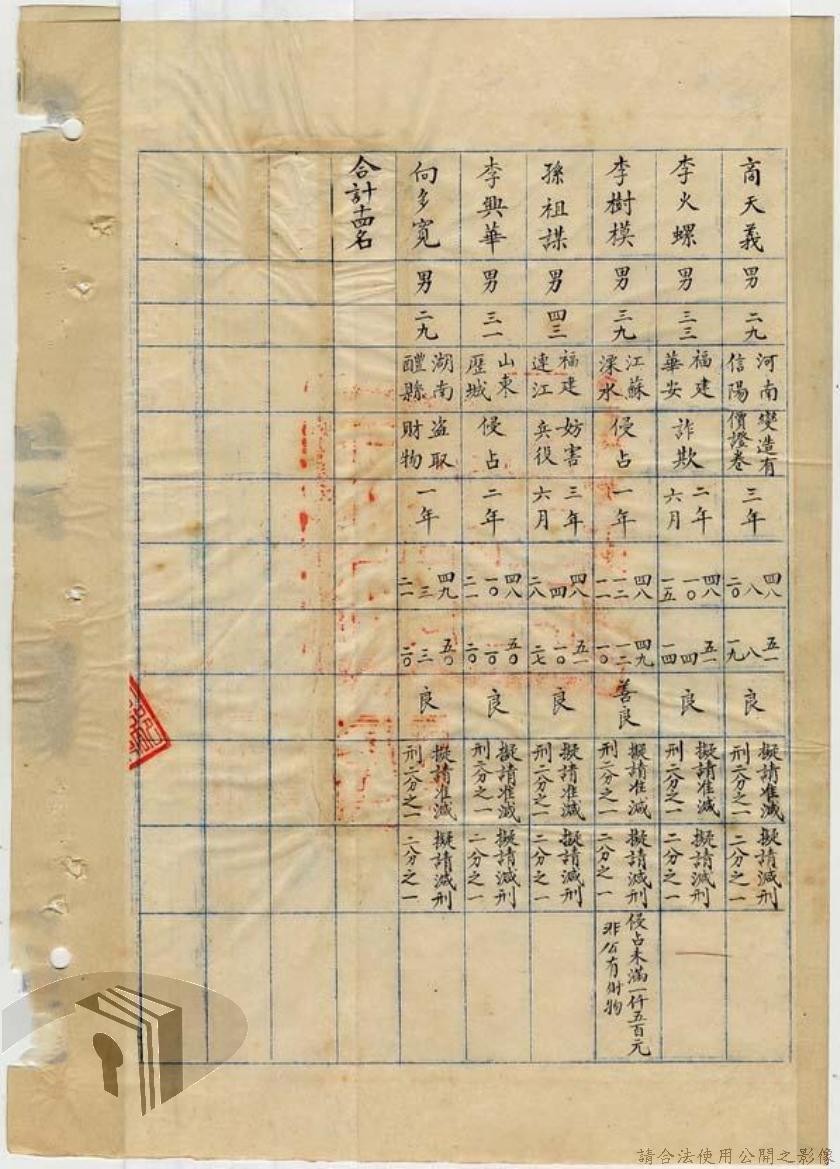 商天義 男 二九 河南信陽 變造有價證卷 三年 四八 八 二〇 五一 八 一九 良 擬請准減刑二分之一 擬請減刑二分之一
李火螺 男 三三 福建華安 詐欺 二年六月 四八 一〇 一五 五一 四 一四 良 擬請准減刑二分之一 擬請減刑二分之一
李樹模 男 三九 江蘇溧水 侵占 一年 四八 一二 一一 四九 一二 一〇 善良 擬請准減刑二分之一 擬請減刑二分之一 侵占未滿一仟五百元非公有財物
孫祖謀 男 四三 福建連江 妨害兵役 三年六月 四八 四 二八 五一 一〇 二七 良 擬請准減刑二分之一 擬請減刑二分之一
李興華 男 三一 山東歷城 侵占 二年 四八 一〇 二一 五〇 一〇 二〇 良 擬請准減刑二分之一 擬請減刑二分之一
向多寬 男 二九 湖南醴縣 盜取財物 一年 四九 三 二一 五〇 三 二〇 良 擬請准減刑二分之一 擬請減刑二分之一
合計十四名
請合法使用公開之影像